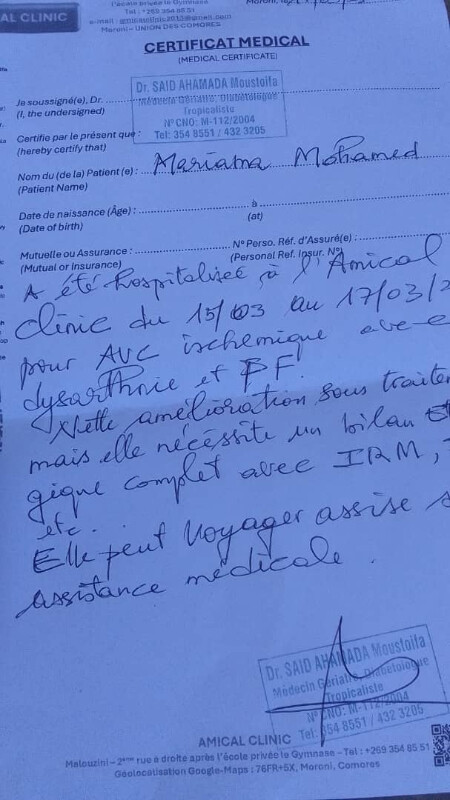 AL CLINIC
l'école privée le Gymnase
Tel : +269 354 85 51
Moroni – UNION DES COMORES
CERTIFICAT MEDICAL
(MEDICAL CERTIFICATE)
Dr. SAID AHAMADA Moustoifa
Médecin Gériatre, Diabétologue
Tropicaliste
N° CNO: M-112/2004
Tel: 354 8551 / 432 3205
Je soussigné(e), Dr.
(I, the undersigned)
Certifie par le présent que :
(hereby certify that)
Nom du (de la) Patient(e) : Mariama Mohamed
(Patient Name)
Date de naissance (Âge) : à
(Date of birth) (at)
Mutuelle ou Assurance : N° Perso. Réf. d'Assuré(e) :
(Mutual or insurance) (Personal Ref. Insur. N°)
A été hospitalisée à l'Amical
Clinic du 15/03 au 17/03/2
pour AVC ischemique ave-c
dysarthrie et PF.
Nette amélioration sous traitem
mais elle nécessite un bilan
gique complet avec IRM,
etc.
Elle peut voyager assise s
assistance médicale.
Dr. SAID AHAMADA Moustoifa
Médecin Gériatre, Diabétologue
Tropicaliste
N° CNO: M-112/2004
Tel: 354 8551 / 432 3205
AMICAL CLINIC
Malouzini – 2ème rue à droite après l'école privée le Gymnase – Tel : +269 354 85 51
Géolocalisation Google-Maps : 76FR+5X, Moroni, Comores